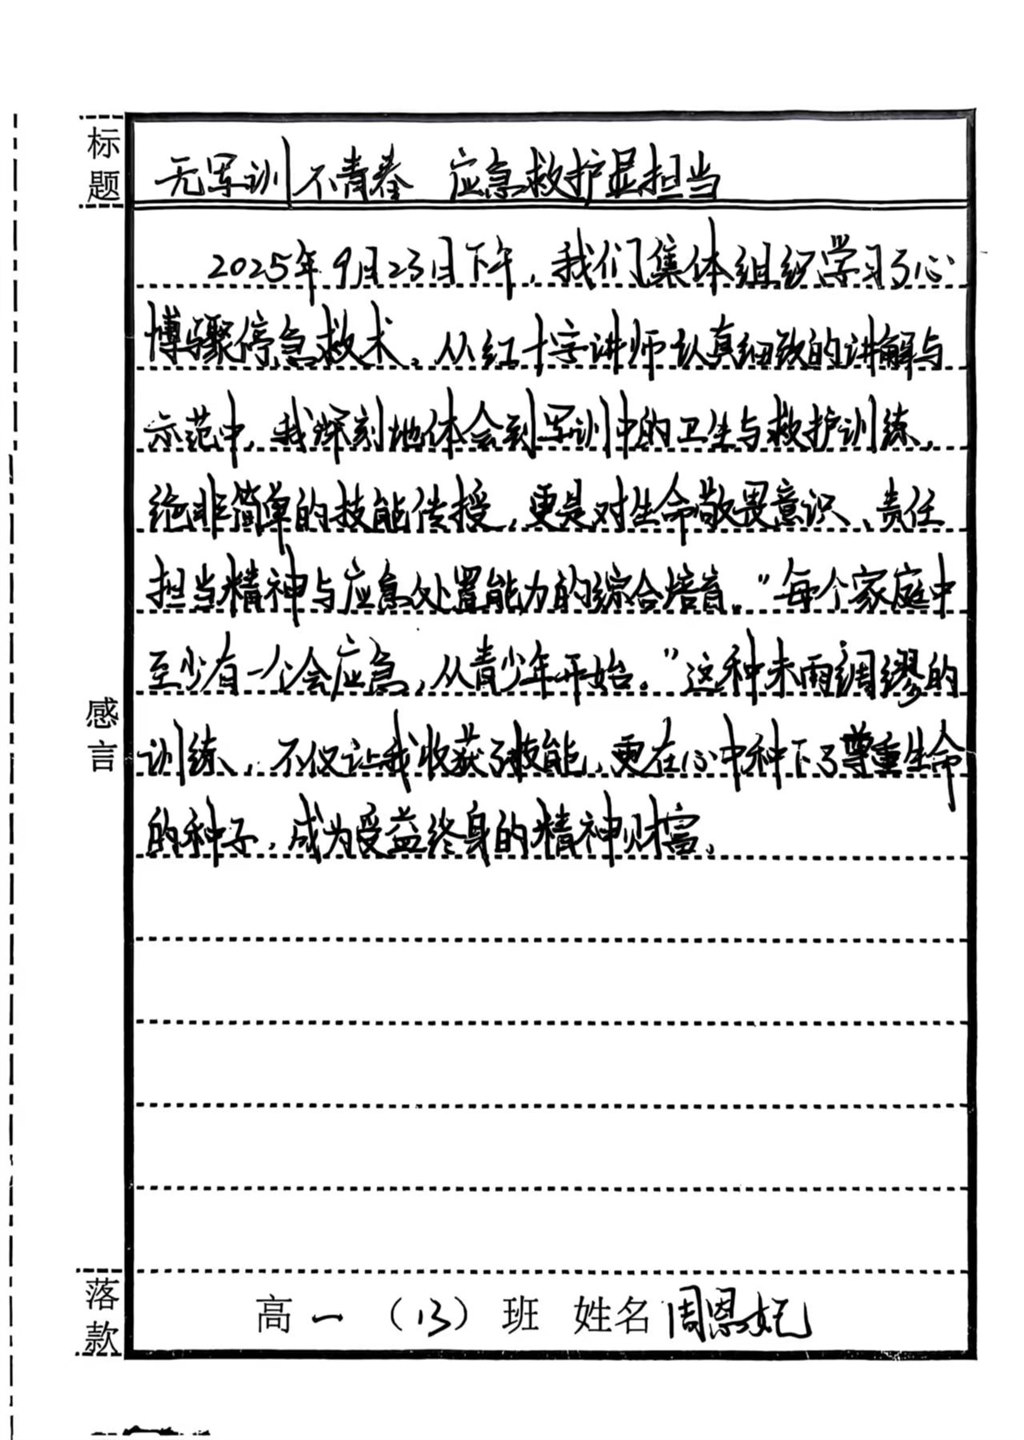 标题
无军训不青春 应急救护显担当
2025年9月23日下午，我们集体组织学习了心
博骤停急救术。从红十字讲师认真细致的讲解与
示范中，我深刻地体会到军训中的卫生与救护训练，
绝非简单的技能传授，更是对生命敬畏意识、责任
担当精神与应急处置能力的综合培育。“每个家庭中
至少有一个会应急，从青少年开始。”这种未雨绸缪的
训练，不仅让我收获了技能，更在心中种下了尊重生命
的种子，成为受益终身的精神财富。
感言
落款
高一（13）班 姓名 周恩妃